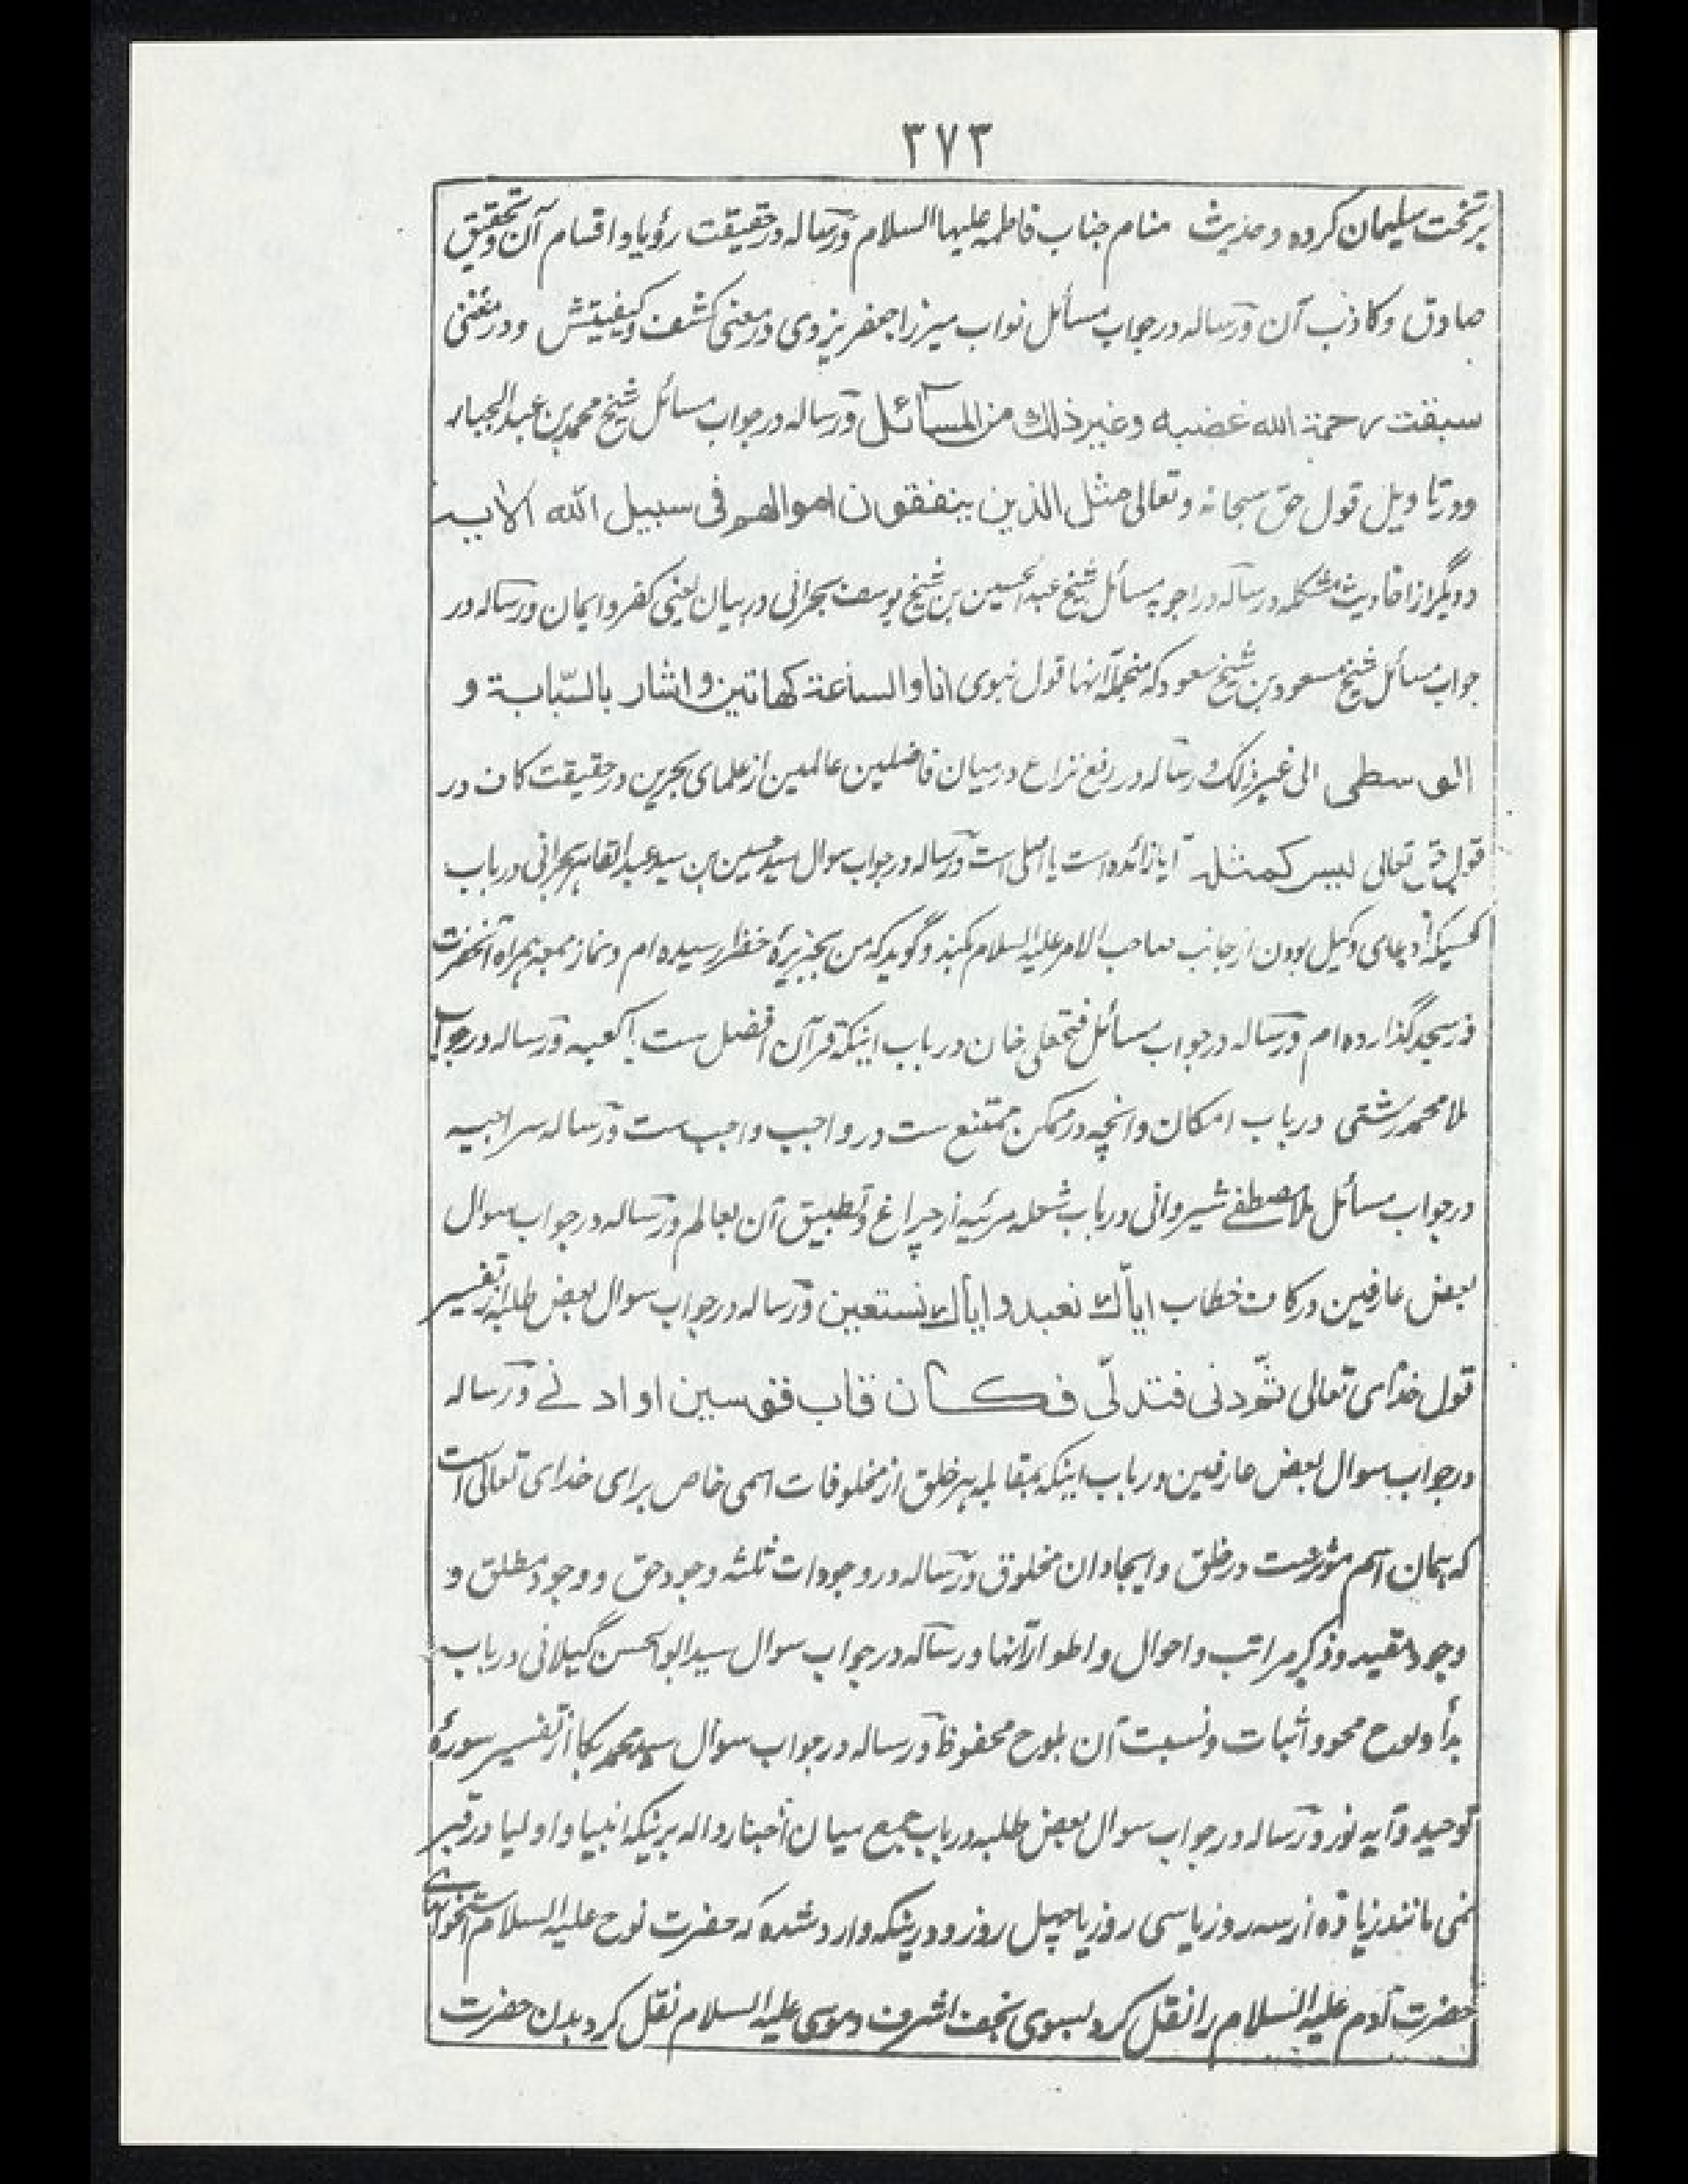 ۳۷۳
بر تخت سلیمان کرده و حدیث منام جناب فاطمه علیها السلام و رساله در حقیقت رؤیا و اقسام آن و تحقیق
صادق و کاذب آن و رساله در جواب مسائل نواب میرزا جعفر یزدی در معنی کشف و کیفیتش و در معنی
سبقت رحمة الله غضبه و غیر ذلك من المسائل و رساله در جواب مسائل شیخ محمد بن عبد الجبار
و در تاویل قول حق سبحانه و تعالی مثل الذین ینفقون اموالهم فی سبیل الله الایه
و دیگر از احادیث مشکله و رساله در اجوبه مسائل شیخ عبد الحسین بن شیخ یوسف بحرانی در بیان یعنی کفر و ایمان و رساله در
جواب مسائل شیخ مسعود بن شیخ سعود که منجمله آنها قول نبوی انا و الساعة کهاتین و اشار بالسّبابة و
الوسطی الی غیر ذلک و رساله در رفع نزاع در میان فاضلین عالمین از علمای بحرین در حقیقت کاف در
قول حق تعالی لیس کمثله آیا زائده است یا اصلی است و رساله در جواب سوال سید حسین بن سید عبد القاهر بحرانی در باب
کسیکه ادعای وکیل بودن از جانب صاحب الامر علیه السلام کند و گوید که من بجزیرهٔ خضرا رسیده ام و نماز جمعه همراه آنحضرت
در مسجد گذارده ام و رساله در جواب مسائل فتحعلی خان در باب اینکه قرآن افضل ست یا کعبه و رساله در جواب
ملا محمد رشتی در باب امکان و انچه در ممکن ممتنع ست در واجب واجب ست و رساله سراجیه
در جواب مسائل ملا مصطفے شیروانی در باب شعله مرئیه از چراغ و تطبیق آن بعالم و رساله در جواب سوال
بعض عارفین در کاف خطاب ایّاك نعبد و ایاك نستعین و رساله در جواب سوال بعض طلبه از تفسیر
قول خدای تعالی ثمّ دنی فتدلّی فکان قاب قوسین او ادنے و رساله
در جواب سوال بعض عارفین در باب اینکه بمقابله هر خلق از مخلوقات اسمی خاص برای خدای تعالی است
که همان اسم مؤثرست در خلق و ایجاد ان مخلوق و رساله در وجودات ثلثه وجود حق و وجود مطلق و
وجود مقید و ذکر مراتب و احوال و اطوار آنها و رساله در جواب سوال سید ابو الحسن گیلانی در باب
بدأ و لوح محو و اثبات و نسبت آن بلوح محفوظ و رساله در جواب سوال سید محمد بکا از تفسیر سورهٔ
توحید و آیه نور و رساله در جواب سوال بعض طلبه در باب جمع میان اخبار داله برینکه انبیا و اولیا در قبر
نمی مانند زیاده از سه روز یا سی روز یا چهل روز و درینکه وارد شده که حضرت نوح علیه السلام استخوانهای
حضرت آدم علیه السلام را نقل کرد بسوی نجف اشرف و موسی علیه السلام نقل کرد بدن حضرت